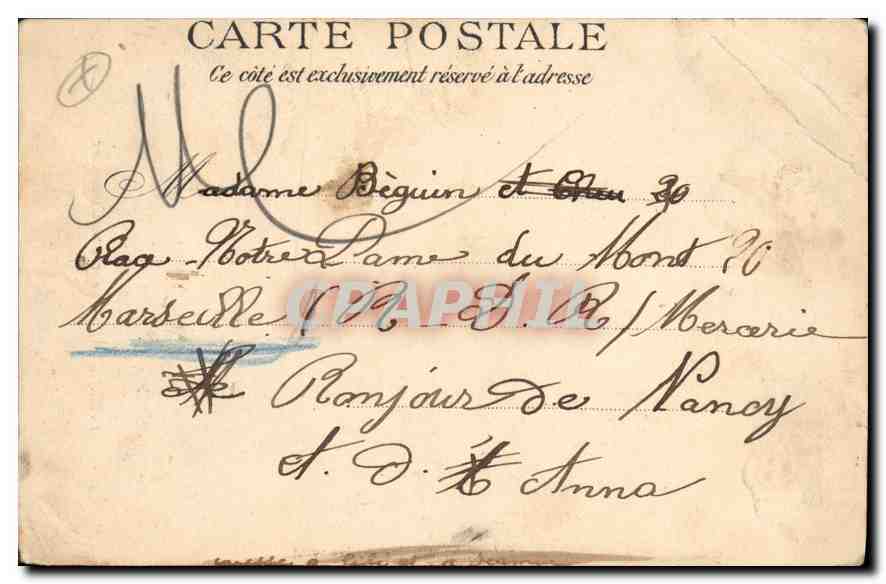 CARTE POSTALE
Ce côté est exclusivement réservé à l'adresse
Madame Bèguin et 20
Place Notre Dame du Mont 20
Marseille (N. D. R) Mercerie
Bonjour de Nancy
et. d. Anna
CPAPHIL